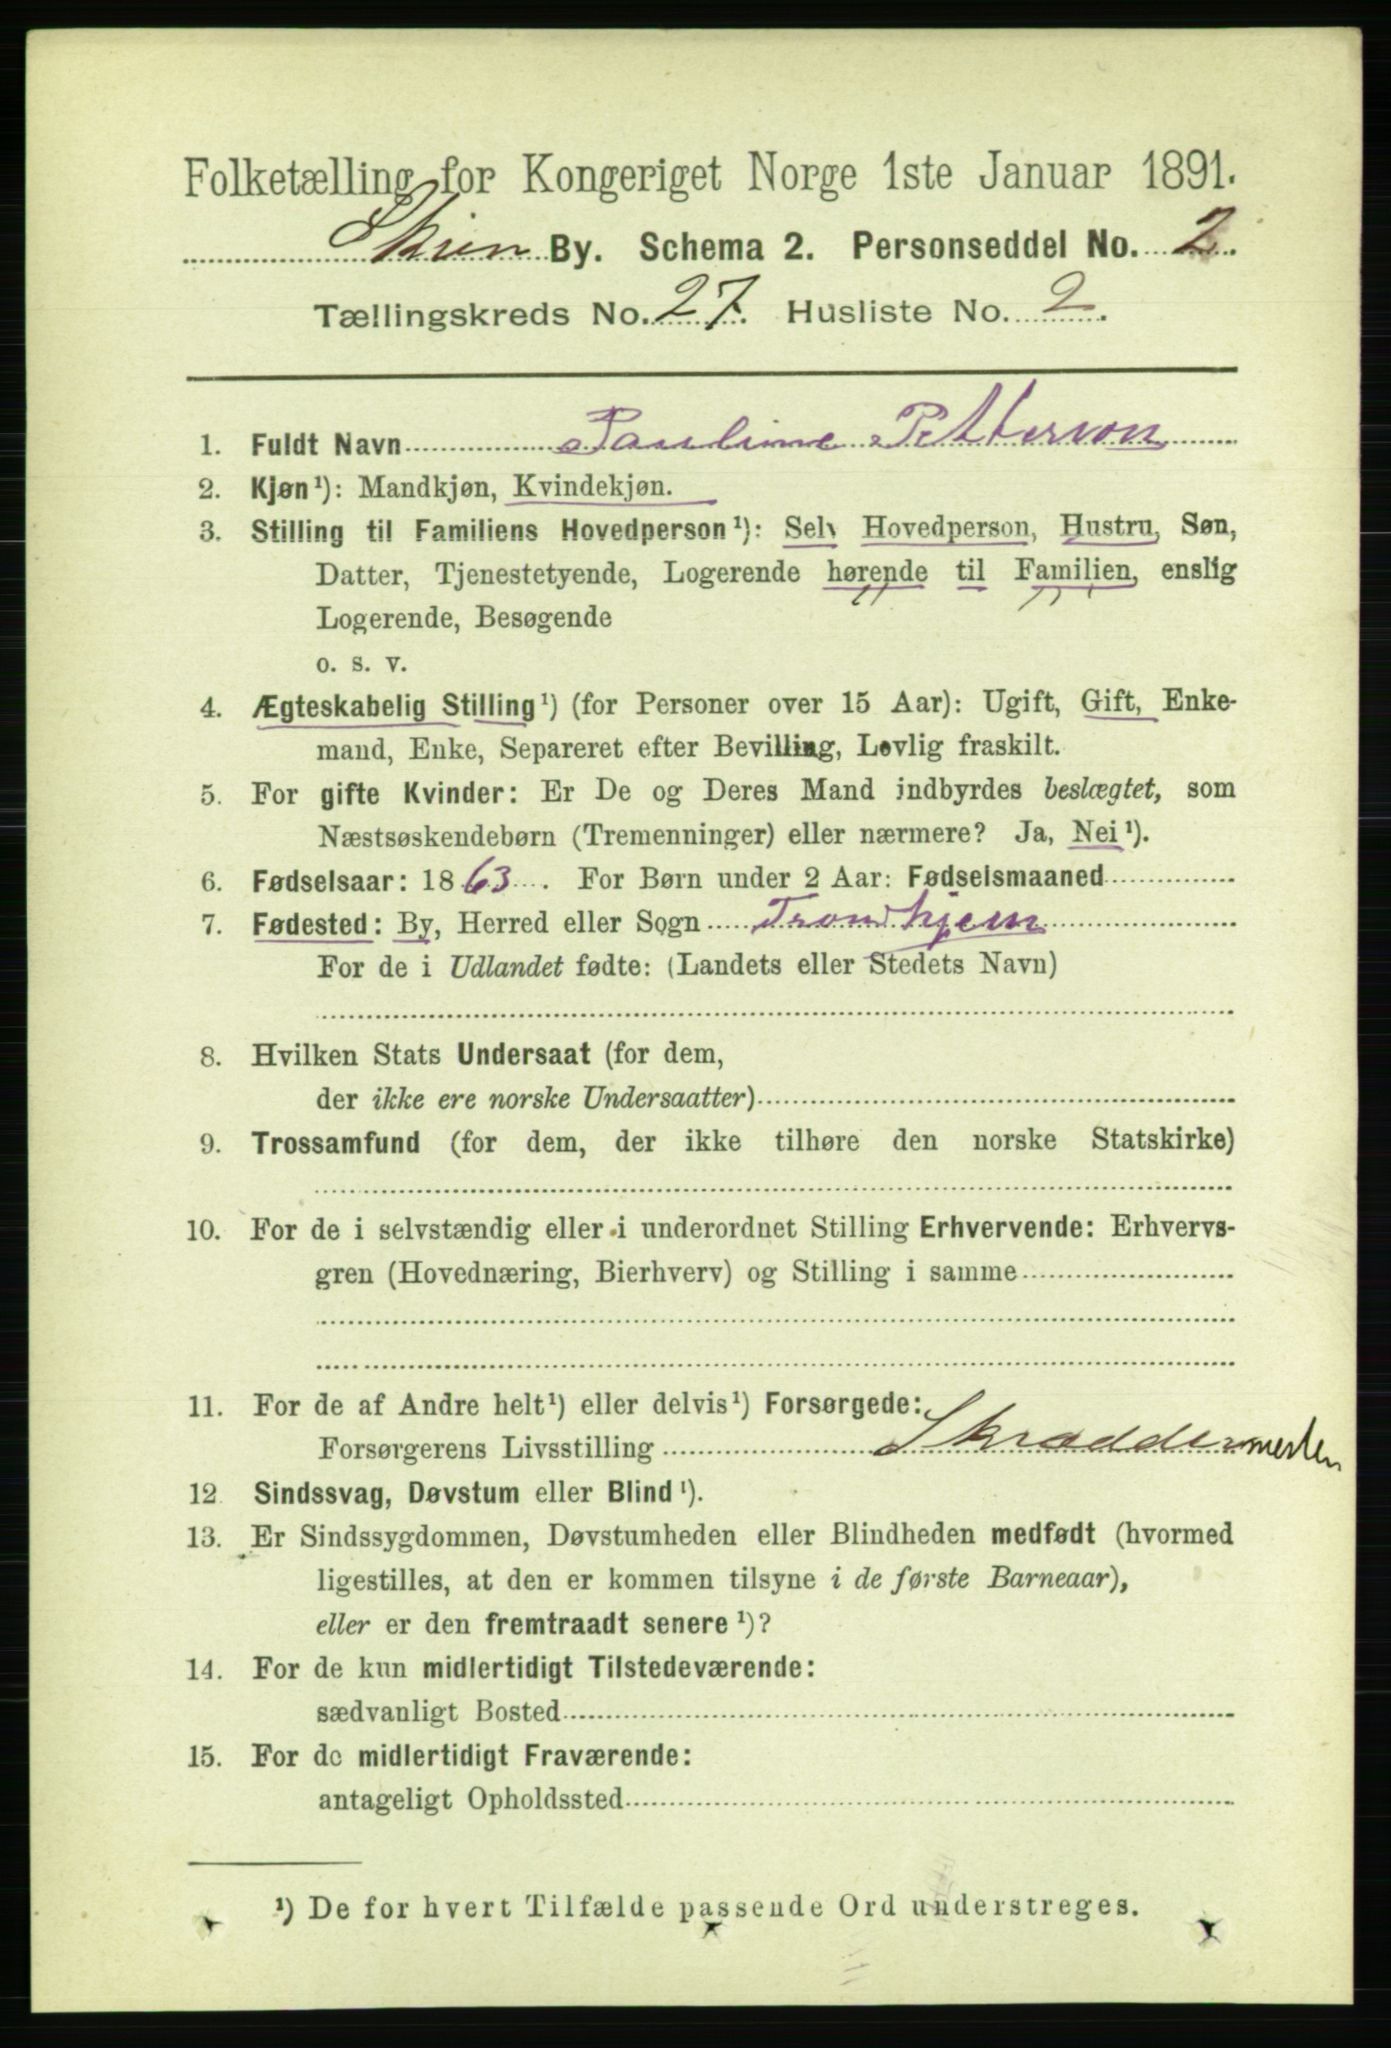 Folketælling for Kongeriget Norge 1ste Januar 1891.
Skien By. Schema 2. Personseddel No. 2.
Tællingskreds No. 27. Husliste No. 2.
1. Fuldt Navn Pauline Petterson
2. Kjøn¹): Mandkjøn, Kvindekjøn.
3. Stilling til Familiens Hovedperson¹): Selv Hovedperson, Hustru, Søn,
Datter, Tjenestetyende, Logerende hørende til Familien, enslig
Logerende, Besøgende
o. s. v.
4. Ægteskabelig Stilling¹) (for Personer over 15 Aar): Ugift, Gift, Enke-
mand, Enke, Separeret efter Bevilling, Lovlig fraskilt.
5. For gifte Kvinder: Er De og Deres Mand indbyrdes beslægtet, som
Næstsøskendebørn (Tremenninger) eller nærmere? Ja, Nei¹).
6. Fødselsaar: 1863. For Børn under 2 Aar: Fødselsmaaned
7. Fødested: By, Herred eller Sogn Trondhjem
For de i Udlandet fødte: (Landets eller Stedets Navn)
8. Hvilken Stats Undersaat (for dem,
der ikke ere norske Undersaatter)
9. Trossamfund (for dem, der ikke tilhøre den norske Statskirke)
10. For de i selvstændig eller i underordnet Stilling Erhvervende: Erhvervs-
gren (Hovednæring, Bierhverv) og Stilling i samme
11. For de af Andre helt¹) eller delvis¹) Forsørgede:
Forsørgerens Livsstilling Skræddermester
12. Sindssvag, Døvstum eller Blind¹).
13. Er Sindssygdommen, Døvstumheden eller Blindheden medfødt (hvormed
ligestilles, at den er kommen tilsyne i de første Barneaar),
eller er den fremtraadt senere¹)?
14. For de kun midlertidigt Tilstedeværende:
sædvanligt Bosted
15. For de midlertidigt Fraværende:
antageligt Opholdssted
¹) De for hvert Tilfælde passende Ord understreges.